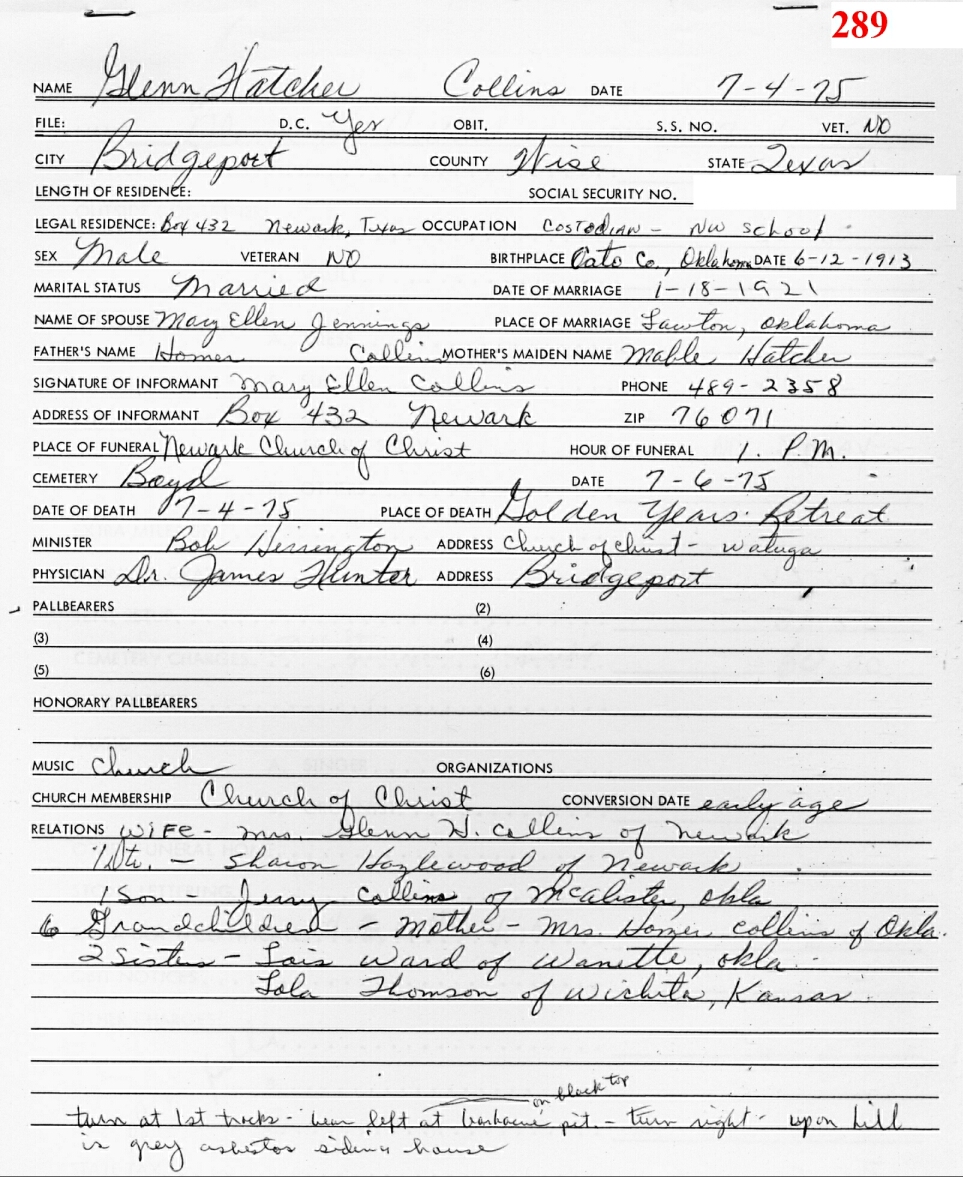 289
NAME Glenn Hatcher Collins DATE 7-4-75
FILE: D.C. Yes OBIT. S.S. NO. VET. NO
CITY Bridgeport COUNTY Wise STATE Texas
LENGTH OF RESIDENCE: SOCIAL SECURITY NO.
LEGAL RESIDENCE: Box 432 Newark, Texas OCCUPATION Costodian - NW school
SEX Male VETERAN NO BIRTHPLACE Cato Co., Oklahoma DATE 6-12-1913
MARITAL STATUS Married DATE OF MARRIAGE 1-18-1921
NAME OF SPOUSE Mary Ellen Jennings PLACE OF MARRIAGE Lawton, Oklahoma
FATHER'S NAME Homer Collins MOTHER'S MAIDEN NAME Mable Hatcher
SIGNATURE OF INFORMANT Mary Ellen Collins PHONE 489-2358
ADDRESS OF INFORMANT Box 432 Newark ZIP 76071
PLACE OF FUNERAL Newark Church of Christ HOUR OF FUNERAL 1. P.M.
CEMETERY Boyd DATE 7-6-75
DATE OF DEATH 7-4-75 PLACE OF DEATH Golden Years Retreat
MINISTER Bob Herrington ADDRESS Church of Christ - Watuga
PHYSICIAN Dr. James Hunter ADDRESS Bridgeport
PALLBEARERS (2)
(3) (4)
(5) (6)
HONORARY PALLBEARERS
MUSIC Church ORGANIZATIONS
CHURCH MEMBERSHIP Church of Christ CONVERSION DATE early age
RELATIONS Wife - Mrs. Glenn H. Collins of Newark
1 dtr. - Sharon Hazlewood of Newark
1 Son - Jerry Collins of McAlister, Okla
6 Grandchildren - Mother - Mrs. Homer Collins of Okla.
2 Sisters - Lois Ward of Wanette, Okla.
Lola Thomson of Wichita, Kansas
on black top
turn at 1st tracks - bear left at pit. - turn right - upon hill
is grey asbestos siding house